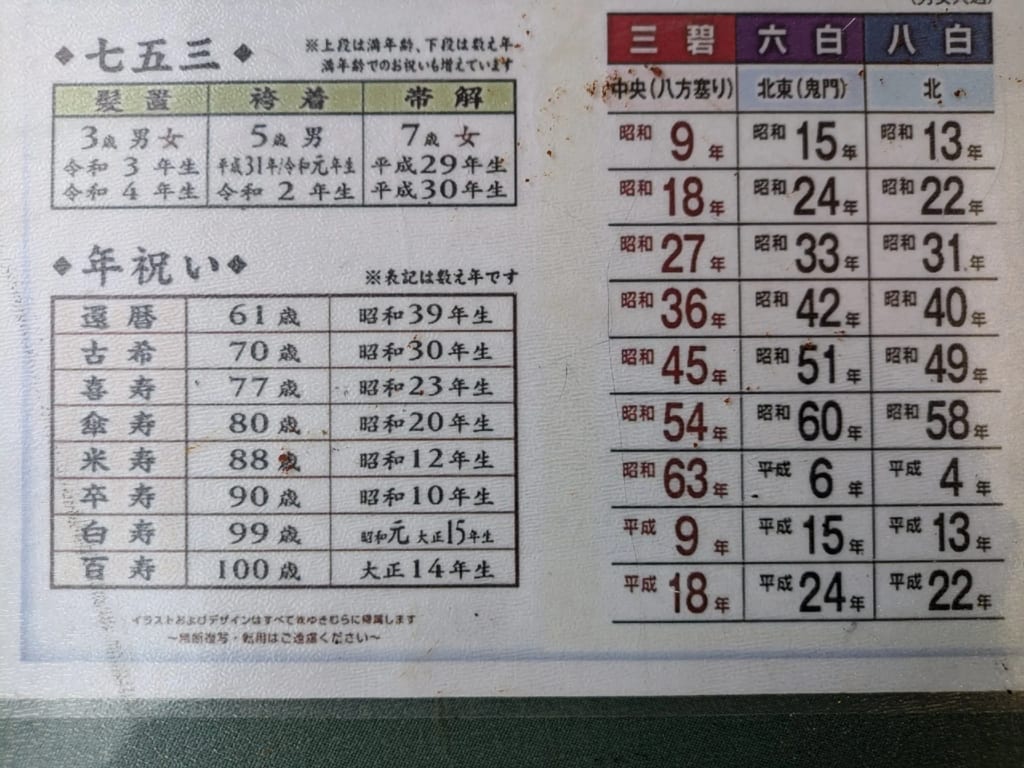 ◆七五三◆
※上段は満年齢、下段は数え年
満年齢でのお祝いも増えています
髪置 袴着 帯解
3歳 男女 5歳 男 7歳 女
令和3年生 平成31年/令和元年生 平成29年生
令和4年生 令和2年生 平成30年生
◆年祝い◆
※表記は数え年です
還暦 61歳 昭和39年生
古希 70歳 昭和30年生
喜寿 77歳 昭和23年生
傘寿 80歳 昭和20年生
米寿 88歳 昭和12年生
卒寿 90歳 昭和10年生
白寿 99歳 昭和元 大正15年生
百寿 100歳 大正14年生
イラストおよびデザインはすべて㈱ゆきむらに帰属します
～無断複写・転用はご遠慮ください～
三碧 六白 八白
中央(八方塞り) 北東(鬼門) 北
昭和9年 昭和15年 昭和13年
昭和18年 昭和24年 昭和22年
昭和27年 昭和33年 昭和31年
昭和36年 昭和42年 昭和40年
昭和45年 昭和51年 昭和49年
昭和54年 昭和60年 昭和58年
昭和63年 平成6年 平成4年
平成9年 平成15年 平成13年
平成18年 平成24年 平成22年